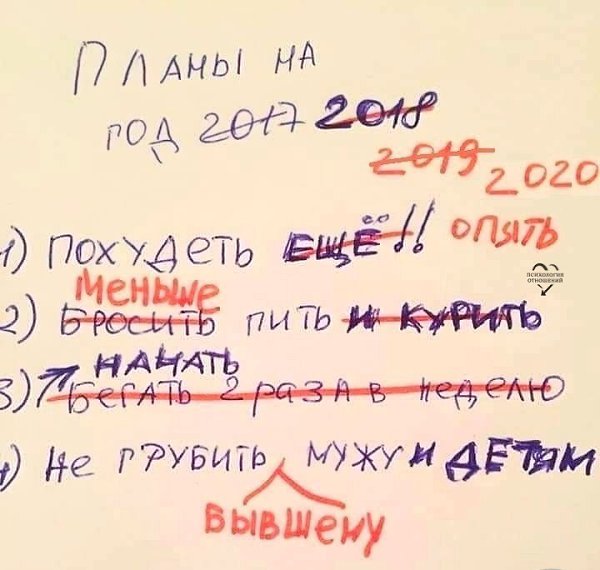 ПЛАНЫ НА
ГОД 2017 2018
2019 2020
1) ПОХУДЕТЬ ЕЩЁ!! ОПЯТЬ
МЕНЬШЕ
2) БРОСИТЬ ПИТЬ И КУРИТЬ
НАЧАТЬ
3) БЕГАТЬ 2 РАЗА В НЕДЕЛЮ
4) НЕ ГРУБИТЬ МУЖУ И ДЕТЯМ
БЫВШЕМУ
ПСИХОЛОГИЯ
ОТНОШЕНИЙ